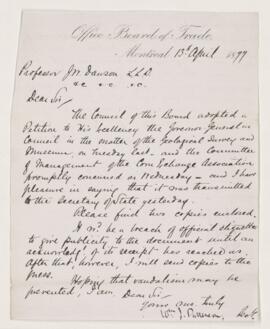 Office Board of Trade.
Montreal 13th April 1877
Professor J.W. Dawson L.L.D.
&c. &c. &c.
Dear Sir,
The Council of this Board adopted a
Petition to His Excellency the Governor General in
Council in the matter of the Geological Survey and
Museum, on Tuesday last, and the Committee
of Management of the Corn Exchange Association
promptly concurred on Wednesday – and I have
pleasure in saying that it was transmitted
to the Secretary of State yesterday.
Please find two copies enclosed.
It wd. be a breach of official etiquette
to give publicity to the document until an
acknowledgt. of its receipt has reached us.
After that, however, I will send copies to the
press.
Hoping that vandalism may be
prevented, I am, Dear Sir,
Yours mo. truly
Wm. J. Patterson,